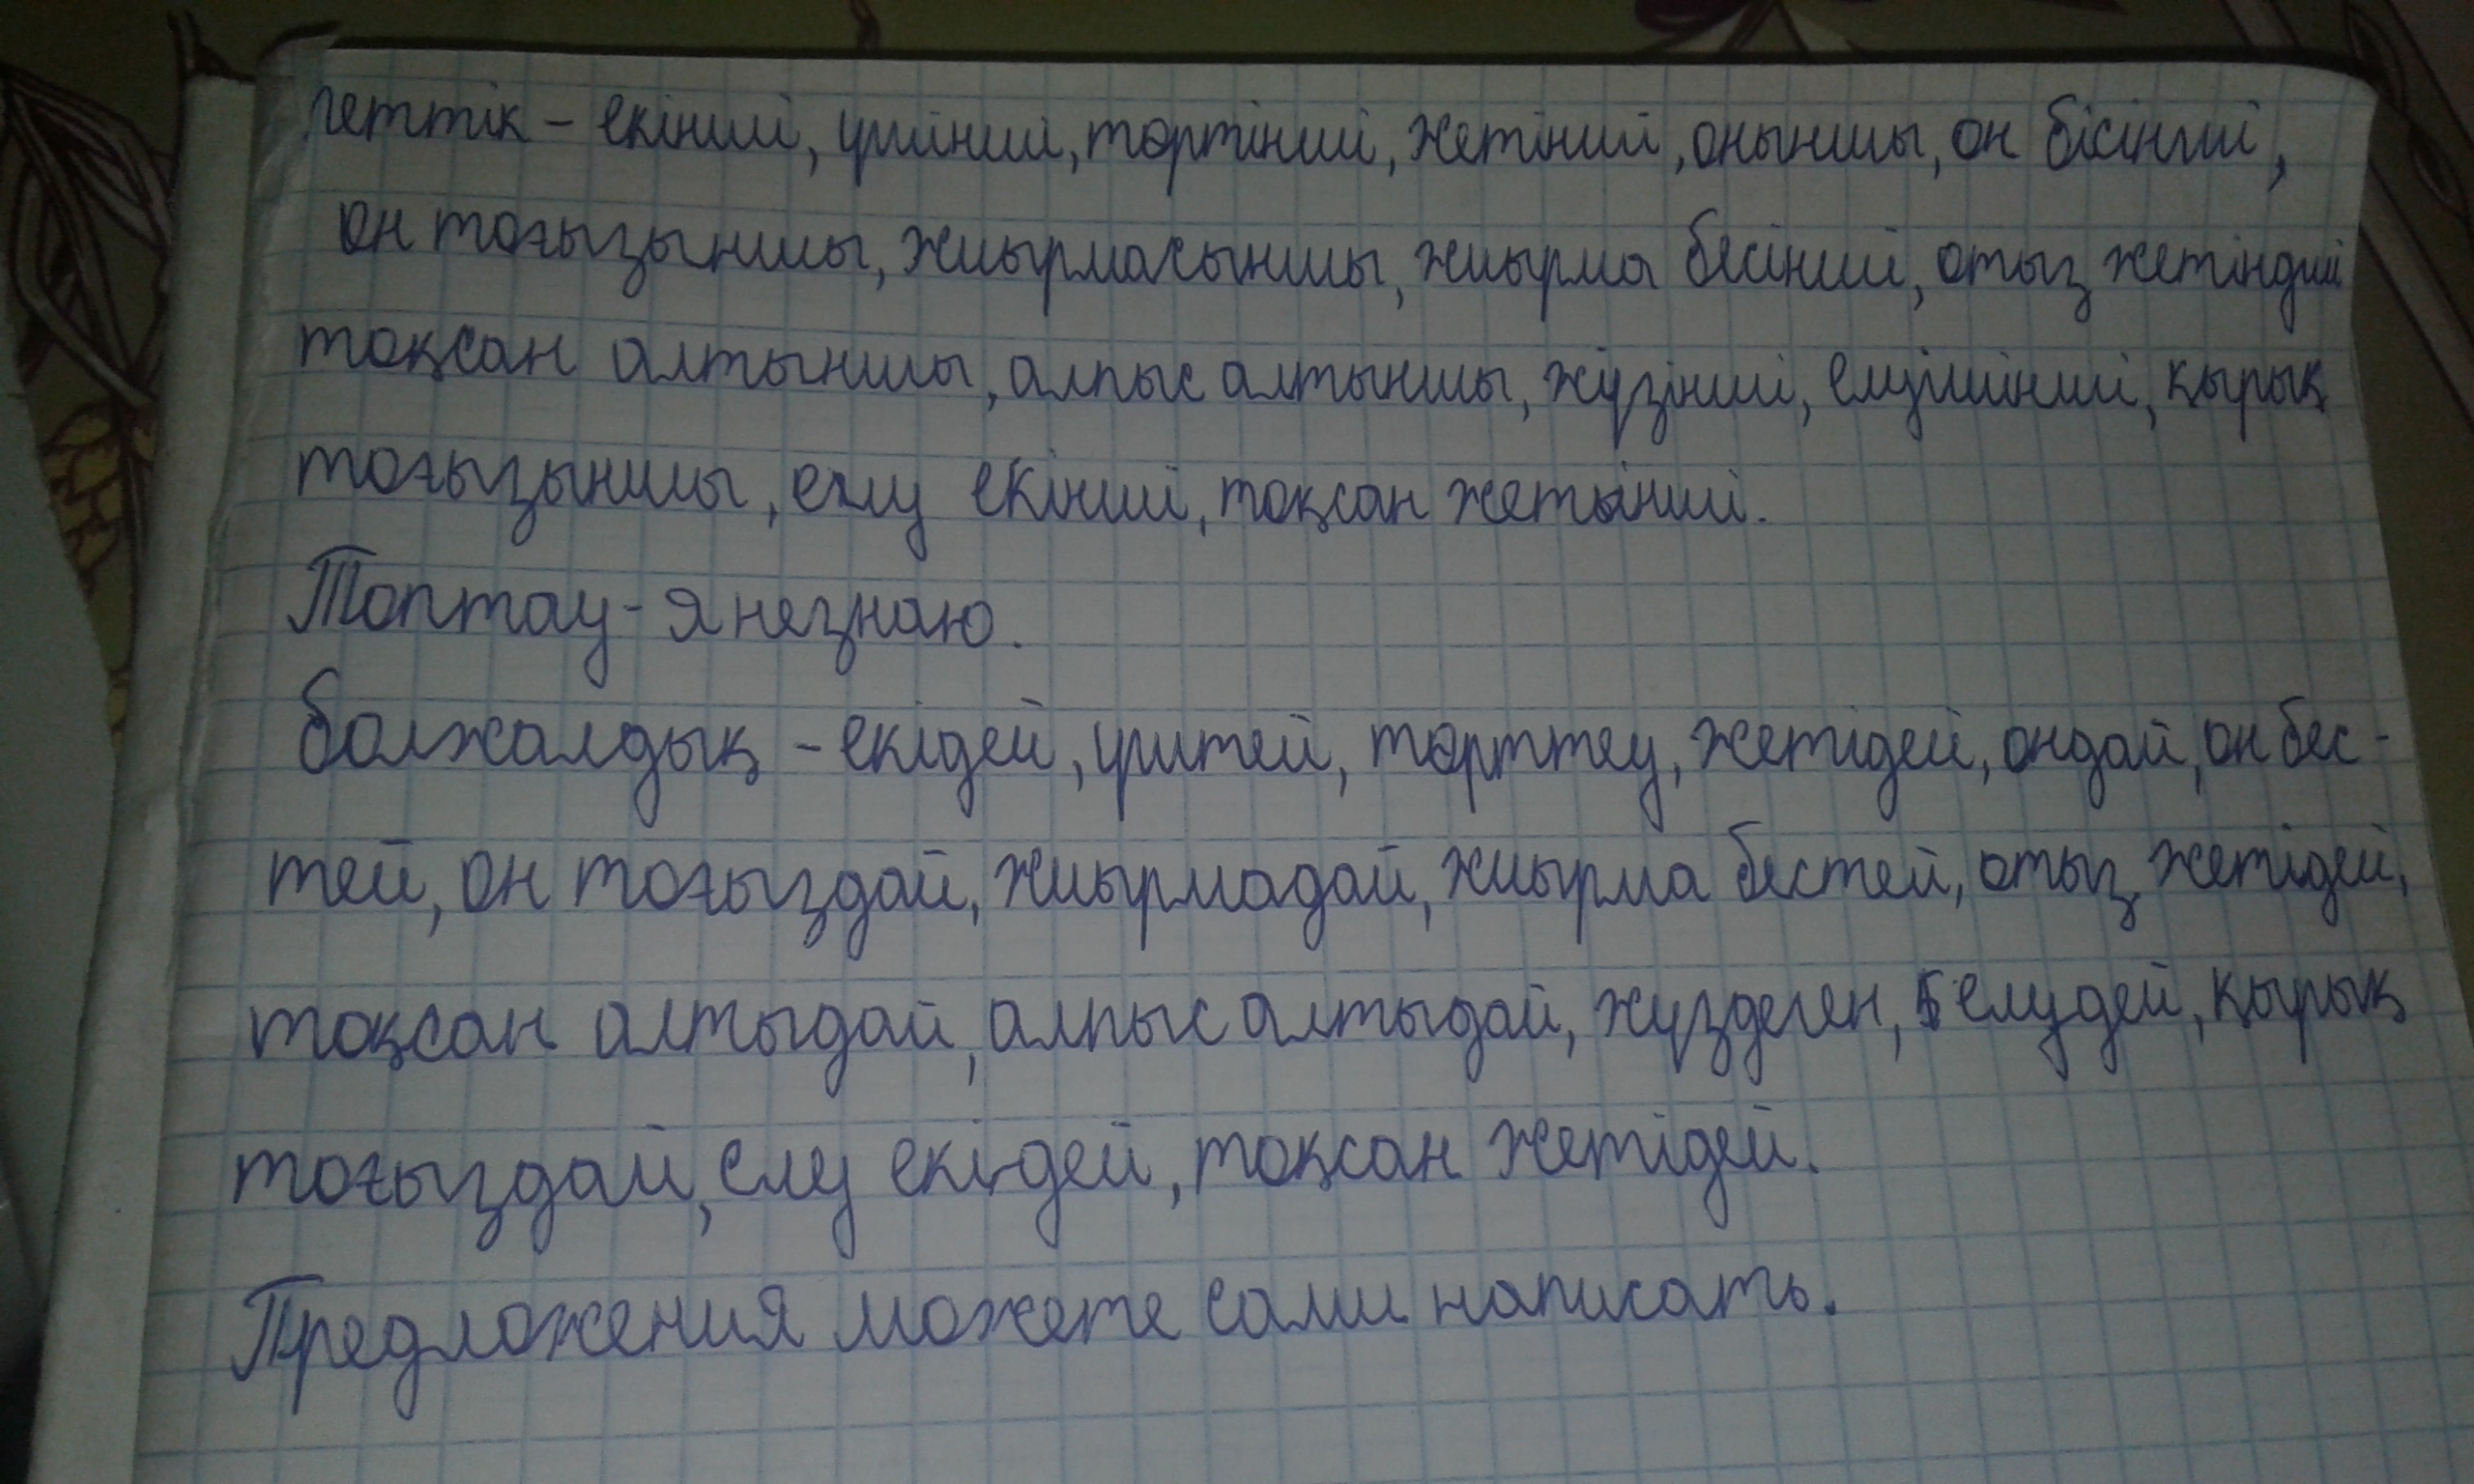 реттік - екінші, үшінші, төртінші, жетінші, оныншы, он бісінші,
он тоғызыншы, жиырмасыншы, жиырма бесінші, отыз жетіндші
тоқсан алтыншы, алпыс алтыншы, жүзінші, қырық
тоғызыншы, елу екінші, тоқсан жетінші.
Топтау - я незнаю.
болжалдық - екідей, үштей, төрттеу, жетідей, ондай, он бес-
тей, он тоғыздай, жиырмадай, жиырма бестей, отыз жетідей,
тоқсан алтыдай, алпыс алтыдай, жүздеген, елудей, қырық
тоғыздай, елу екідей, тоқсан жетідей.
Предложения можете сами написать.